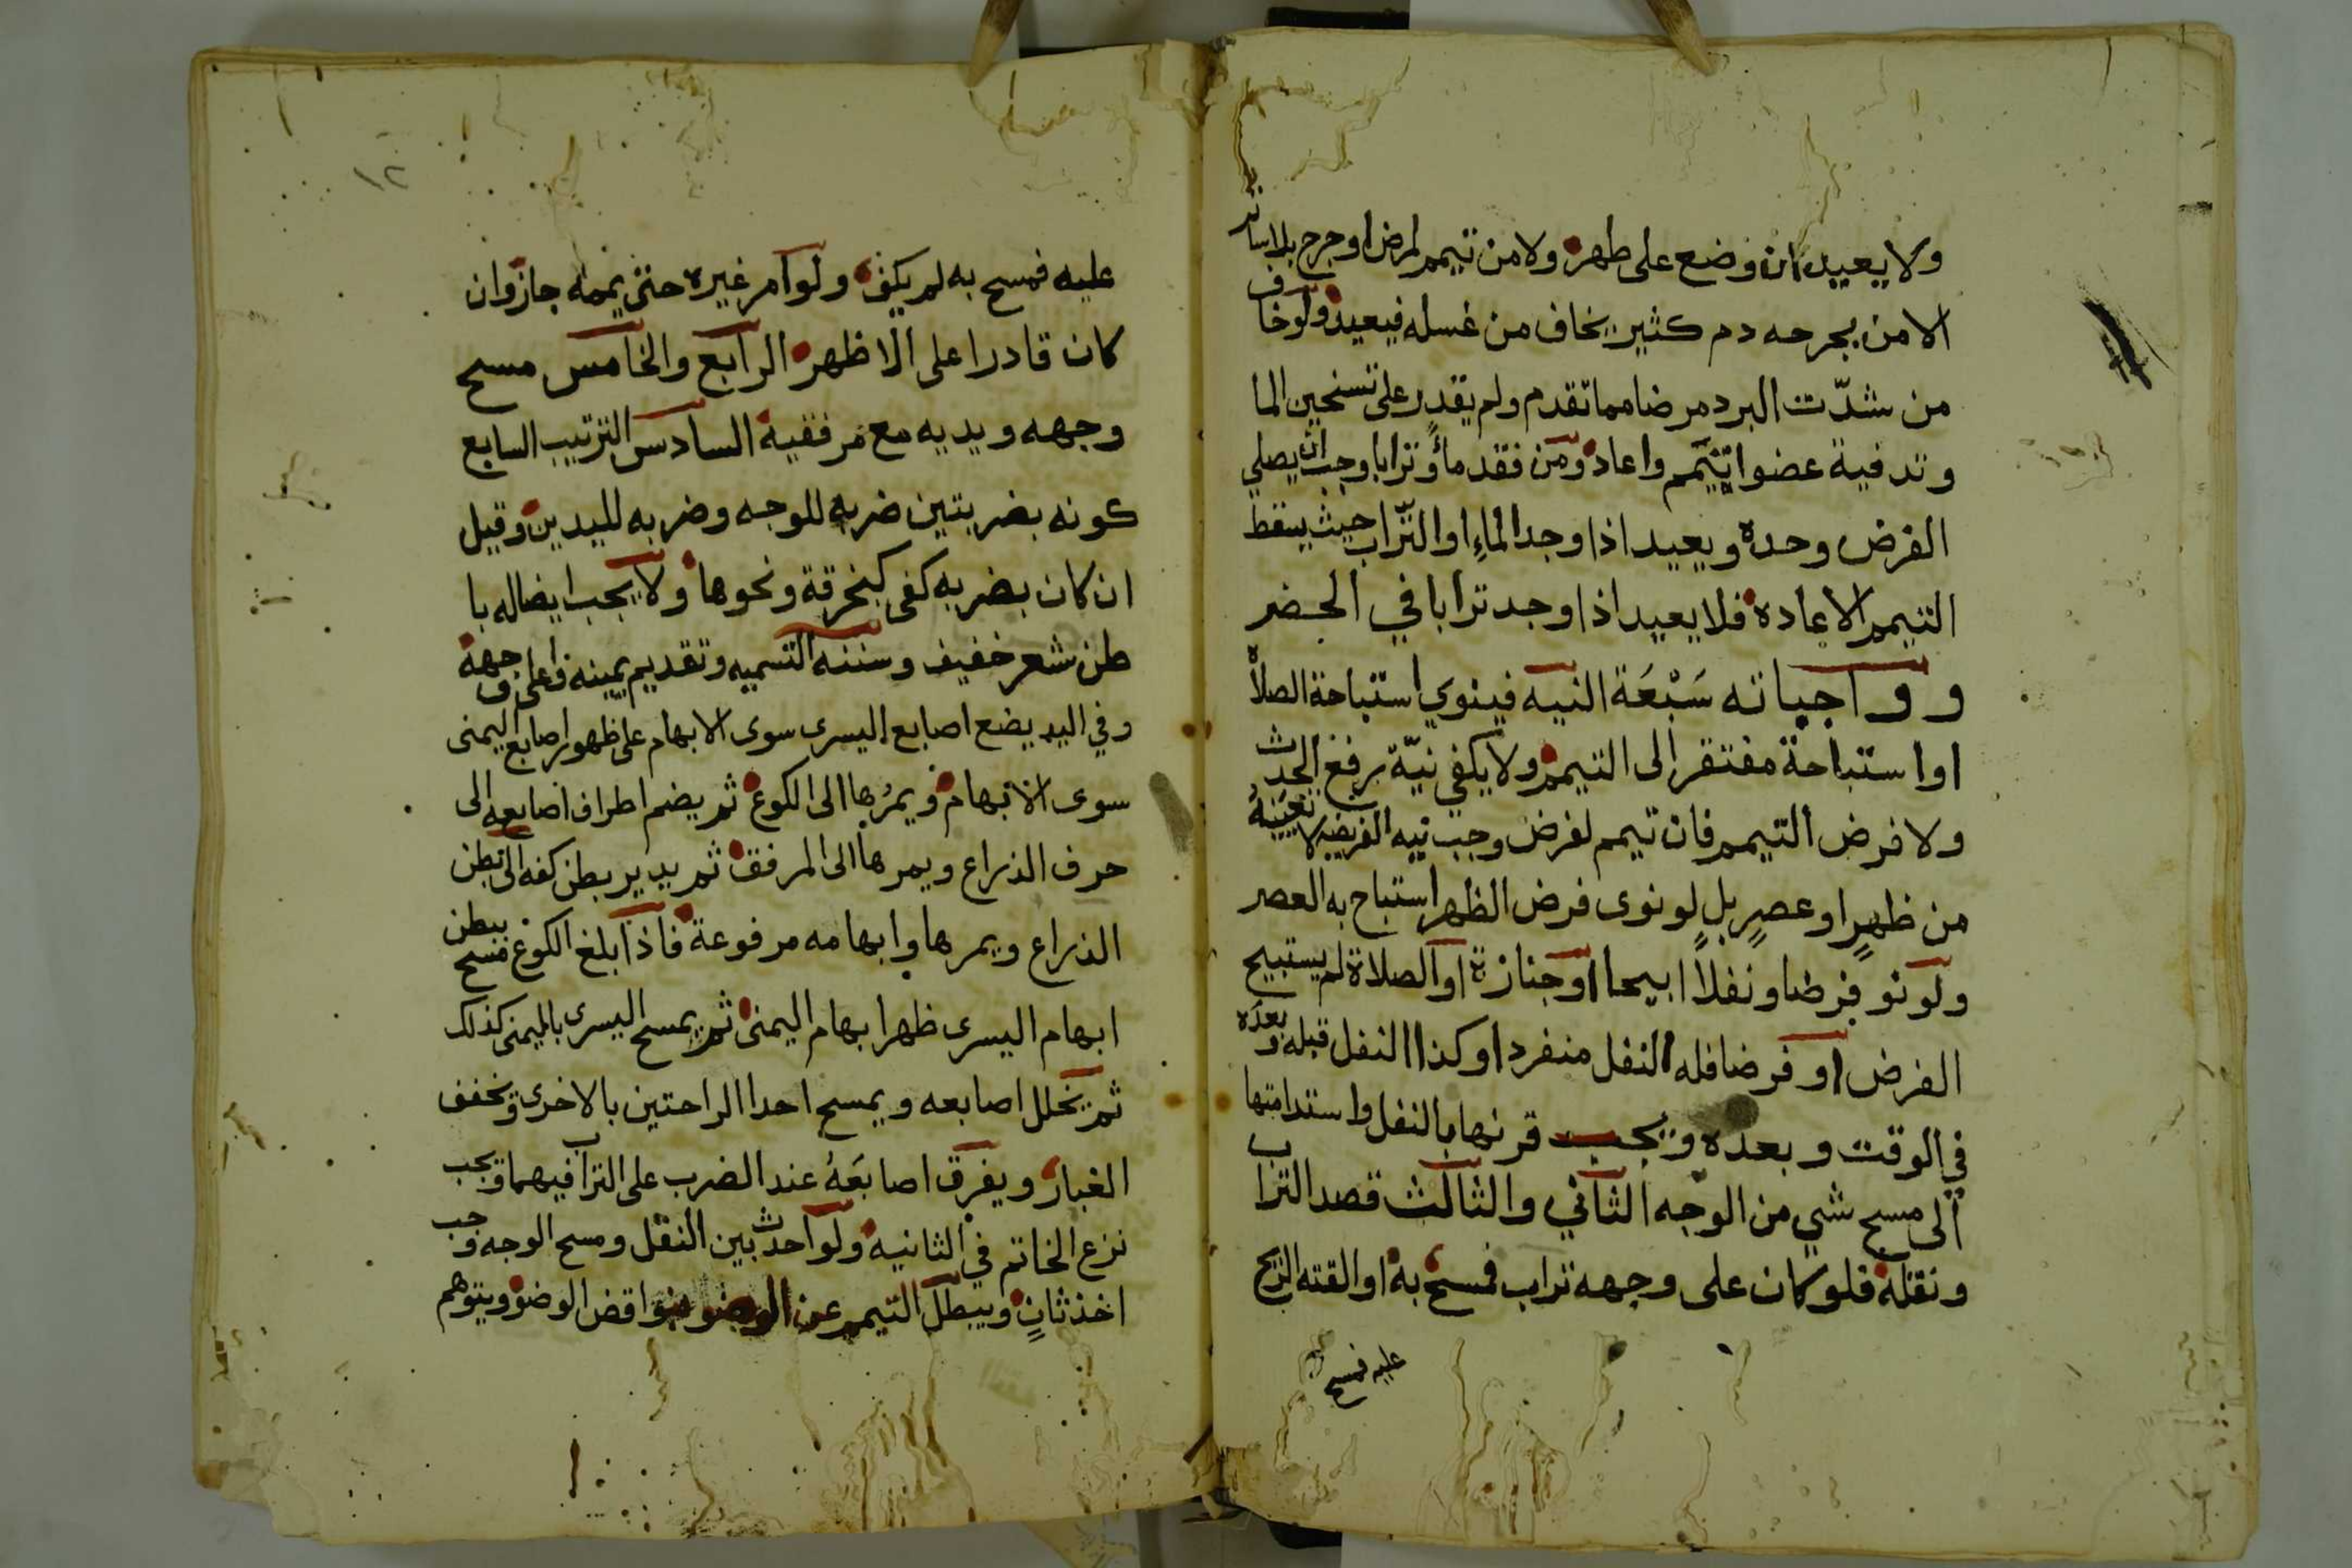 ولا يعيد ان وضع على طهر ولا من تيمم لمرض او جرح بلا ساتر
الا من بجرحه دم كثير يخاف من غسله فيعيد ولو خاف
من شدّت البرد مرضا مما تقدم ولم يقدر على تسخين الما
وتدفية عضوا تيمم واعاد ومن فقد ماً وترابا وجب ان يصلي
الفرض وحده ويعيد اذا وجد الماء او التراب حيث يسقط
التيمم الاعاده فلا يعيد اذا وجد ترابا في الحضر
وواجباته سَبْعَة النيه فينوي استباحة الصلاه
او استباحة مفتقر الى التيمم ولا يكفي نيّة برفع الحدث
ولا فرض التيمم فان تيمم لفرض وجب نيه الفريضه لا تعيينه
من ظهرٍ او عصرٍ بل لو نوى فرض الظهر استباح به العصر
ولو نو فرضا ونفلاً ابيحا او جنازة او الصلاة لم يستبيح
الفرض او فرضا فله النفل منفردا وكذا النفل قبله وبعده
في الوقت وبعده ويجب قرنها بالنفل واستدامتها
الى مسح شي من الوجه الثاني والثالث قصد التراب
ونقله فلو كان على وجهه تراب فمسح به او القته الريح
عليه فمسح
١٢
عليه فمسح به لم يكف ولو امر غيره حتى يممه جاز وان
كان قادرا على الاظهر الرابع والخامس مسح
وجهه ويديه مع مرفقيه السادس الترتيب السابع
كونه بضربتين ضربه للوجه وضربه لليدين وقيل
ان كان بضربه كفى كبخرقة ونحوها ولا يجب ايصاله با
طن شعر خفيف وسننه التسميه وتقديم يمينه واعلى وجهه
وفي اليد يضع اصابع اليسرى سوى الابهام على ظهور اصابع اليمنى
سوى الابهام ويمرها الى الكوع ثم يضم اطراف اصابعه الى
حرف الذراع ويمرها الى المرفق ثم يدير بطن كفه الى بطن
الذراع ويمرها وابهامه مرفوعة فاذا بلغ الكوع مسح ببطن
ابهام اليسرى ظهر ابهام اليمنى ثم يمسح اليسرى باليمنى كذلك
ثم يخلل اصابعه ويمسح احدا الراحتين بالاخرى ويخفف
الغبار ويفرق اصابعَهُ عند الضرب على التراب فيهما ويجب
نزع الخاتم في الثانيه ولو احدث بين النقل ومسح الوجه وجب
اخذ ثانٍ ويبطل التيمم عن الوضو نواقض الوضو ويتوهم